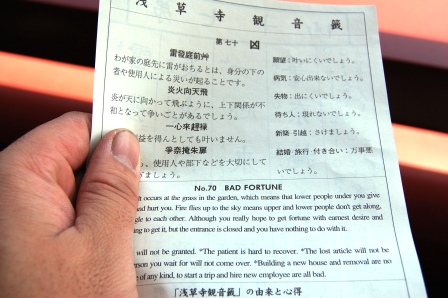 浅草寺観音籤
第七十 凶
雷發庭前艸
わが家の庭先に雷がおちるとは、身分の下の
者や使用人による災いが起ることです。
炎火向天飛
炎が天に向かって飛ぶように、上下関係が不
和となって争いごとがあるでしょう。
一心來趕禄
益を得んとしても叶いません。
爭奈掩朱扉
、使用人や部下などを大切にして
ましょう。
願望：叶いにくいでしょう。
病気：安心出来ないでしょう。
失物：出にくいでしょう。
待ち人：現れないでしょう。
新築・引越：さけましょう。
結婚・旅行・付き合い：万事悪
いでしょう。
No.70 BAD FORTUNE
It occurs at the grass in the garden, which means that lower people under you give
and hurt you. Fire flies up to the sky means upper and lower people don't get along,
gle to each other. Although you really hope to get fortune with earnest desire and
ing to get it, but the entrance is closed and you have nothing to do with it.
will not be granted. *The patient is hard to recover. *The lost article will not be
erson you wait for will not come over. *Building a new house and removal are no
of any kind, to start a trip and hire new employee are all bad.
「浅草寺観音籤」の由来と心得